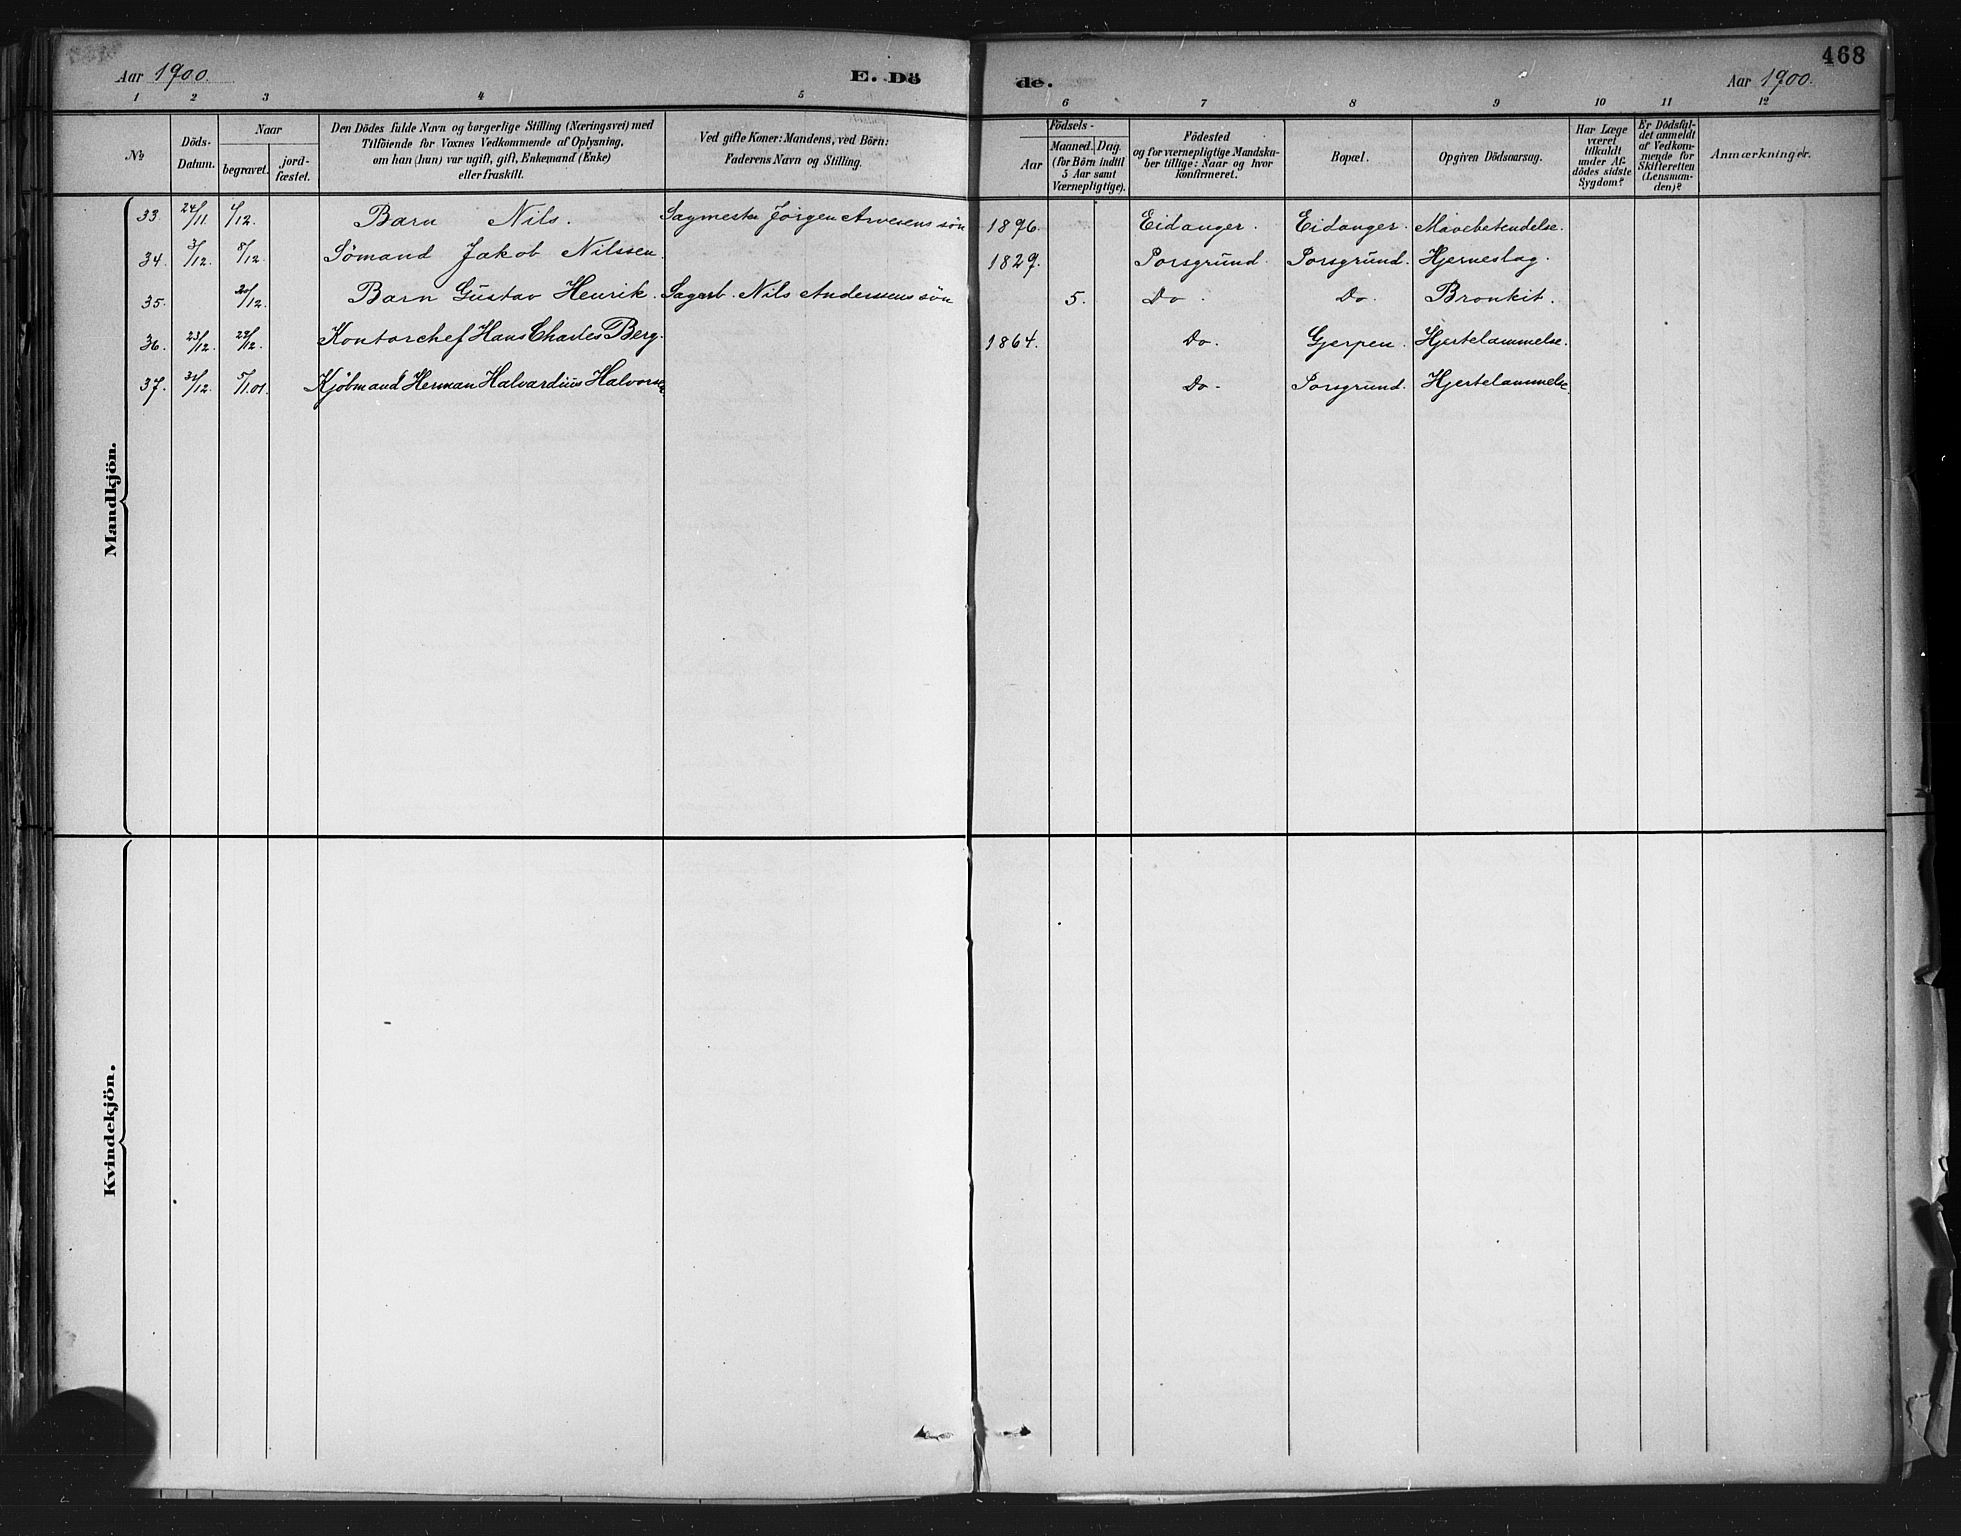 468
Aar 1900. E. Dö de. Aar 1900.
1 2 3 4 5 6 7 8 9 10 11 12
No
Döds-
Datum.
Naar
begravet.
jord-
fæstet.
Den Dödes fulde Navn og borgerlige Stilling (Næringsvei) med
Tilföiende for Voxnes Vedkommende af Oplysning,
om han (hun) var ugift, gift, Enkemand (Enke)
eller fraskilt.
Ved gifte Koner: Mandens, ved Börn:
Faderens Navn og Stilling.
Födsels-
Aar
Maaned. Dag.
(for Börn indtil
5 Aar samt
Værnepligtige).
Födested
og for værnepligtige Mandska-
ber tillige: Naar og hvor
konfirmeret.
Bopæl.
Opgiven Dödsaarsag.
Har Læge
været
tilkaldt
under Af-
dödes sidste
Sygdom?
Er Dödsfal-
det anmeldt
af Vedkom-
mende for
Skifteretten
(Lensman-
den)?
Anmærkninger.
Mandkjön.
33. 24/11 4/12. Barn Nils. Sagmester Jörgen Arvesens sön 1896. Eidanger. Eidanger. Mavebetendelse.
34. 3/12. 8/12. Sömand Jakob Nilssen. 1829. Porsgrund. Porsgrund. Hjerneslag.
35. 20/12. Barn Gustav Henrik. Sagarb. Nils Anderssens sön 5. Do. Do. Bronkit.
36. 23/12. 29/12. Kontorchef Hans Charles Berg. 1864. Do. Gjerpen. Hjertelammelse.
37. 31/12. 5/1.01. Kjöbmand Herman Halvardius Halvorsen Do. Porsgrund. Hjertelammelse.
Kvindekjön.